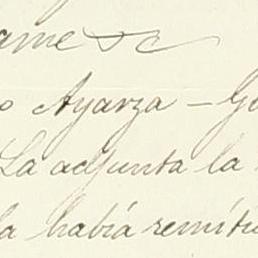 ame &c
o Ayarza - Ge
La adjunta la
la había remiti